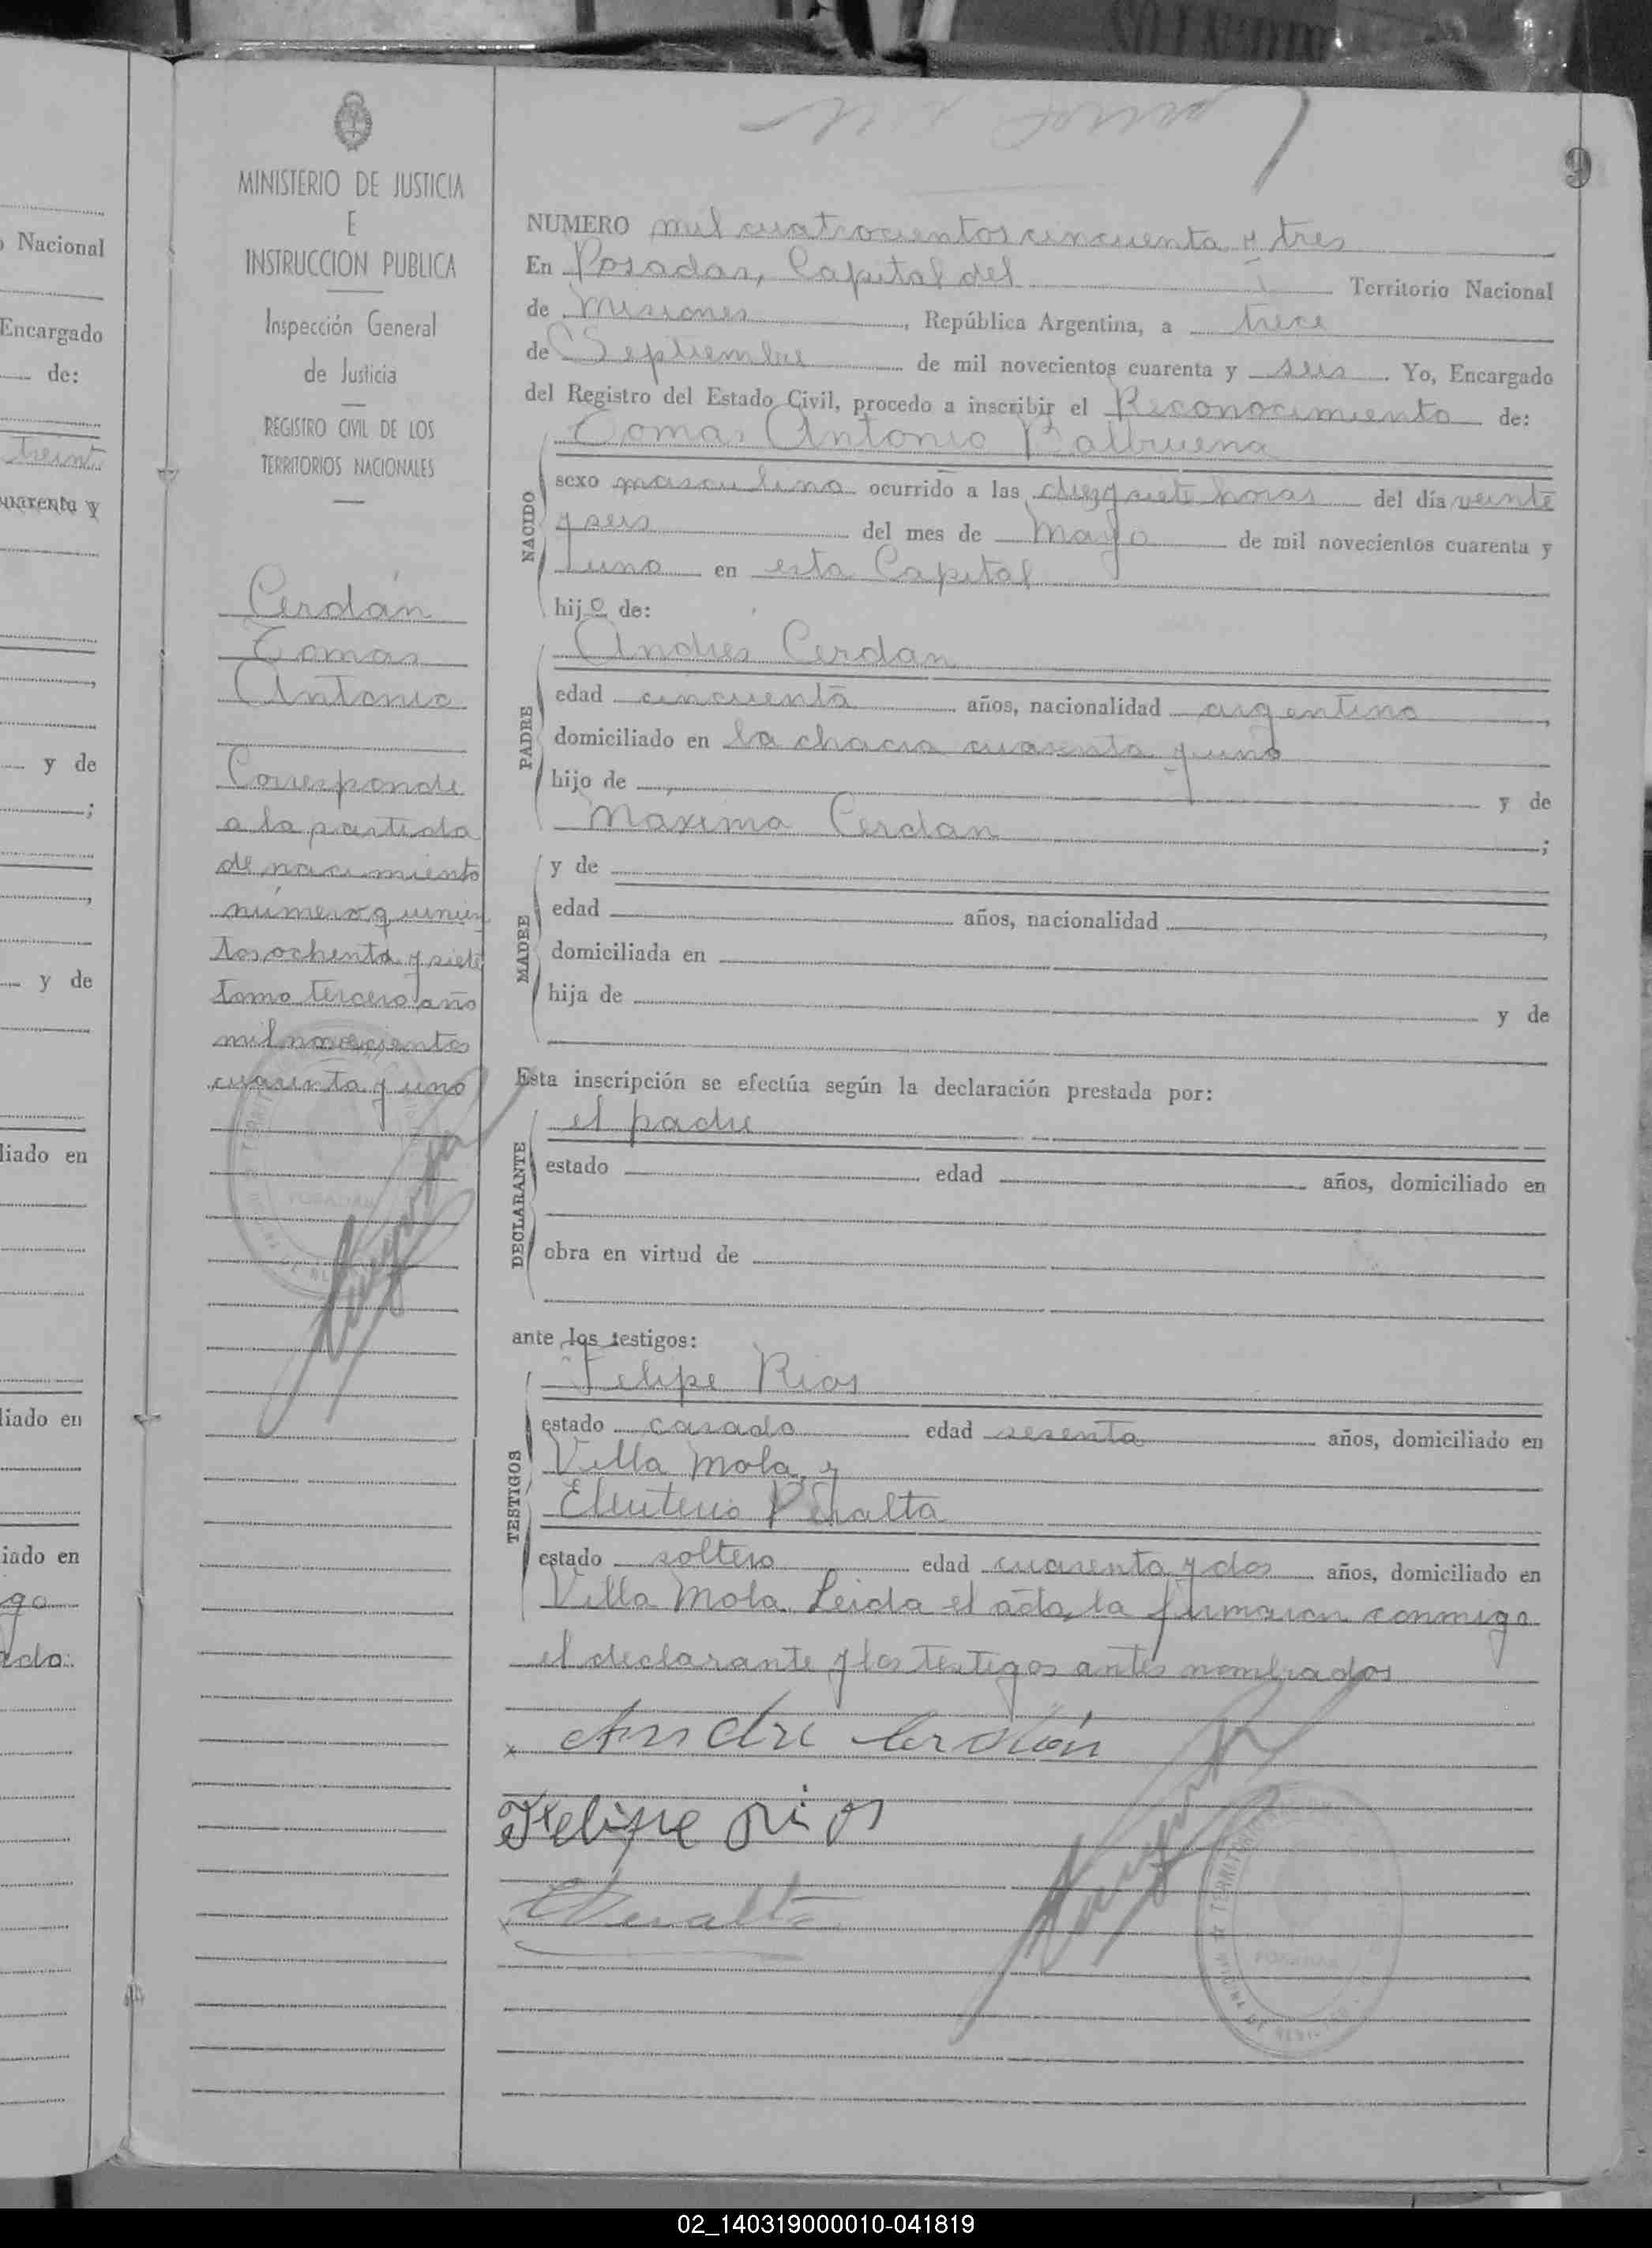 9
MINISTERIO DE JUSTICIA
E
INSTRUCCION PUBLICA
Inspección General
de Justicia
REGISTRO CIVIL DE LOS
TERRITORIOS NACIONALES
Cerdán
Tomás
Antonio
Corresponde
a la partida
de nacimiento
número quinien
tos ochenta y siete
tomo tercero año
mil novecientos
cuarenta y uno
NUMERO mil cuatrocientos cincuenta y tres
En Posadas, Capital del Territorio Nacional
de Misiones, República Argentina, a trece
de Septiembre de mil novecientos cuarenta y seis. Yo, Encargado
del Registro del Estado Civil, procedo a inscribir el Reconocimiento de:
NACIDO
Tomas Antonio Balbuena
sexo masculino ocurrido a las diez y siete horas del día veinte
y seis del mes de Mayo de mil novecientos cuarenta y
uno en esta Capital
hijo de:
PADRE
Andres Cerdan
edad cincuenta años, nacionalidad argentino,
domiciliado en la chacra cuarenta y uno
hijo de y de
Maxima Cerdan;
MADRE
y de
edad años, nacionalidad,
domiciliada en
hija de y de
Esta inscripción se efectúa según la declaración prestada por:
DECLARANTE
el padre
estado edad años, domiciliado en
obra en virtud de
ante los testigos:
TESTIGOS
Felipe Rios
estado casado edad sesenta años, domiciliado en
Villa Mola, y
Eleuterio Peralta
estado soltero edad cuarenta y dos años, domiciliado en
Villa Mola. Leida el acta, la firmaron conmigo
el declarante y los testigos antes nombrados
Andre Cerdán
Felipe rios
EPeralta
POSADAS
Nacional
Encargado
de:
treint
cuarenta y
y de
;
y de
liado en
liado en
iado en
go
ado.
02_140319000010-041819